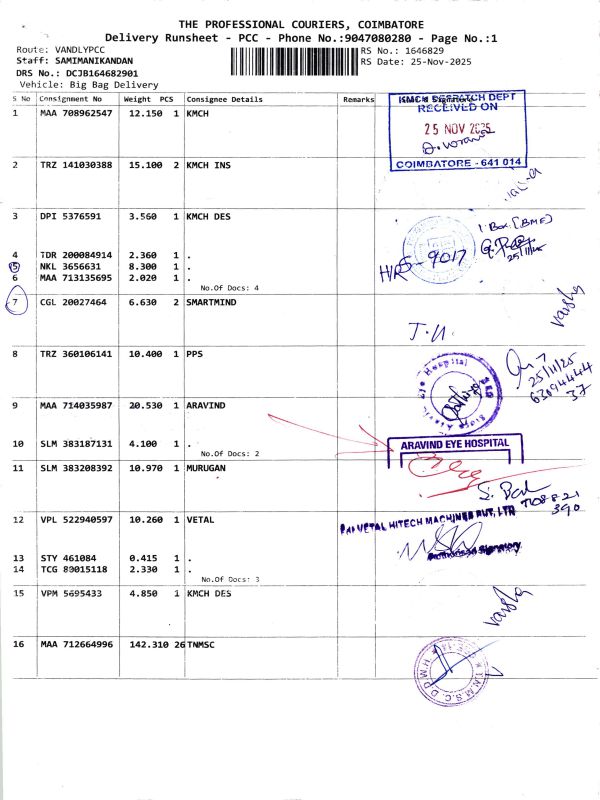 THE PROFESSIONAL COURIERS, COIMBATORE
Delivery Runsheet - PCC - Phone No.:9047080280 - Page No.:1
Route: VANDLYPCC
RS No.: 1646829
Staff: SAMIMANIKANDAN
RS Date: 25-Nov-2025
DRS No.: DCJB164682901
Vehicle: Big Bag Delivery
S No Consignment No Weight PCS Consignee Details Remarks
KMCH DESPATCH DEPT
RECEIVED ON
25 NOV 2025
COIMBATORE - 641 014
1 MAA 708962547 12.150 1 KMCH
2 TRZ 141030388 15.100 2 KMCH INS
3 DPI 5376591 3.560 1 KMCH DES
1 Box [BME]
25/11/25
9017
4 TDR 200084914 2.360 1 .
5 NKL 3656631 8.300 1 .
6 MAA 713135695 2.020 1 .
No.Of Docs: 4
7 CGL 20027464 6.630 2 SMARTMIND
8 TRZ 360106141 10.400 1 PPS
25/11/25
9 MAA 714035987 20.530 1 ARAVIND
10 SLM 383187131 4.100 1 .
No.Of Docs: 2
ARAVIND EYE HOSPITAL
11 SLM 383208392 10.970 1 MURUGAN
12 VPL 522940597 10.260 1 VETAL
VETAL HITECH MACHINES PVT. LTD
Authorised Signatory
13 STY 461084 0.415 1 .
14 TCG 89015118 2.330 1 .
No.Of Docs: 3
15 VPM 5695433 4.850 1 KMCH DES
16 MAA 712664996 142.310 26 TNMSC